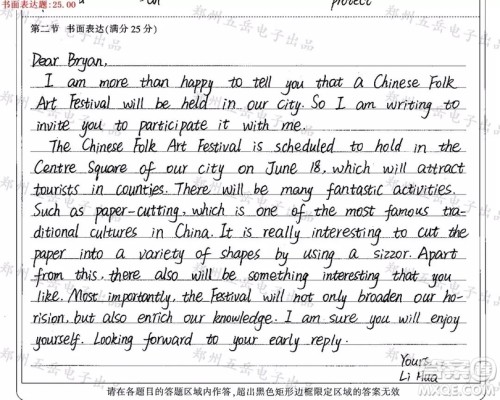 书面表达题: 25.00
protect
第二节 书面表达(满分25分)
Dear Bryan,
I am more than happy to tell you that a Chinese Folk
Art Festival will be held in our city. So I am writing to
invite you to participate it with me.
The Chinese Folk Art Festival is scheduled to hold in the
Centre Square of our city on June 18, which will attract
tourists in counties. There will be many fantastic activities.
Such as paper-cutting, which is one of the most famous tra-
ditional cultures in China. It is really interesting to cut the
paper into a variety of shapes by using a sizzor. Apart
from this, there also will be something interesting that you
like. Most importantly, the Festival will not only broaden our ho-
rision, but also enrich our knowledge. I am sure you will enjoy
yourself. Looking forward to your early reply.
Yours,
Li Hua
请在各题目的答题区域内作答,超出黑色矩形边框限定区域的答案无效